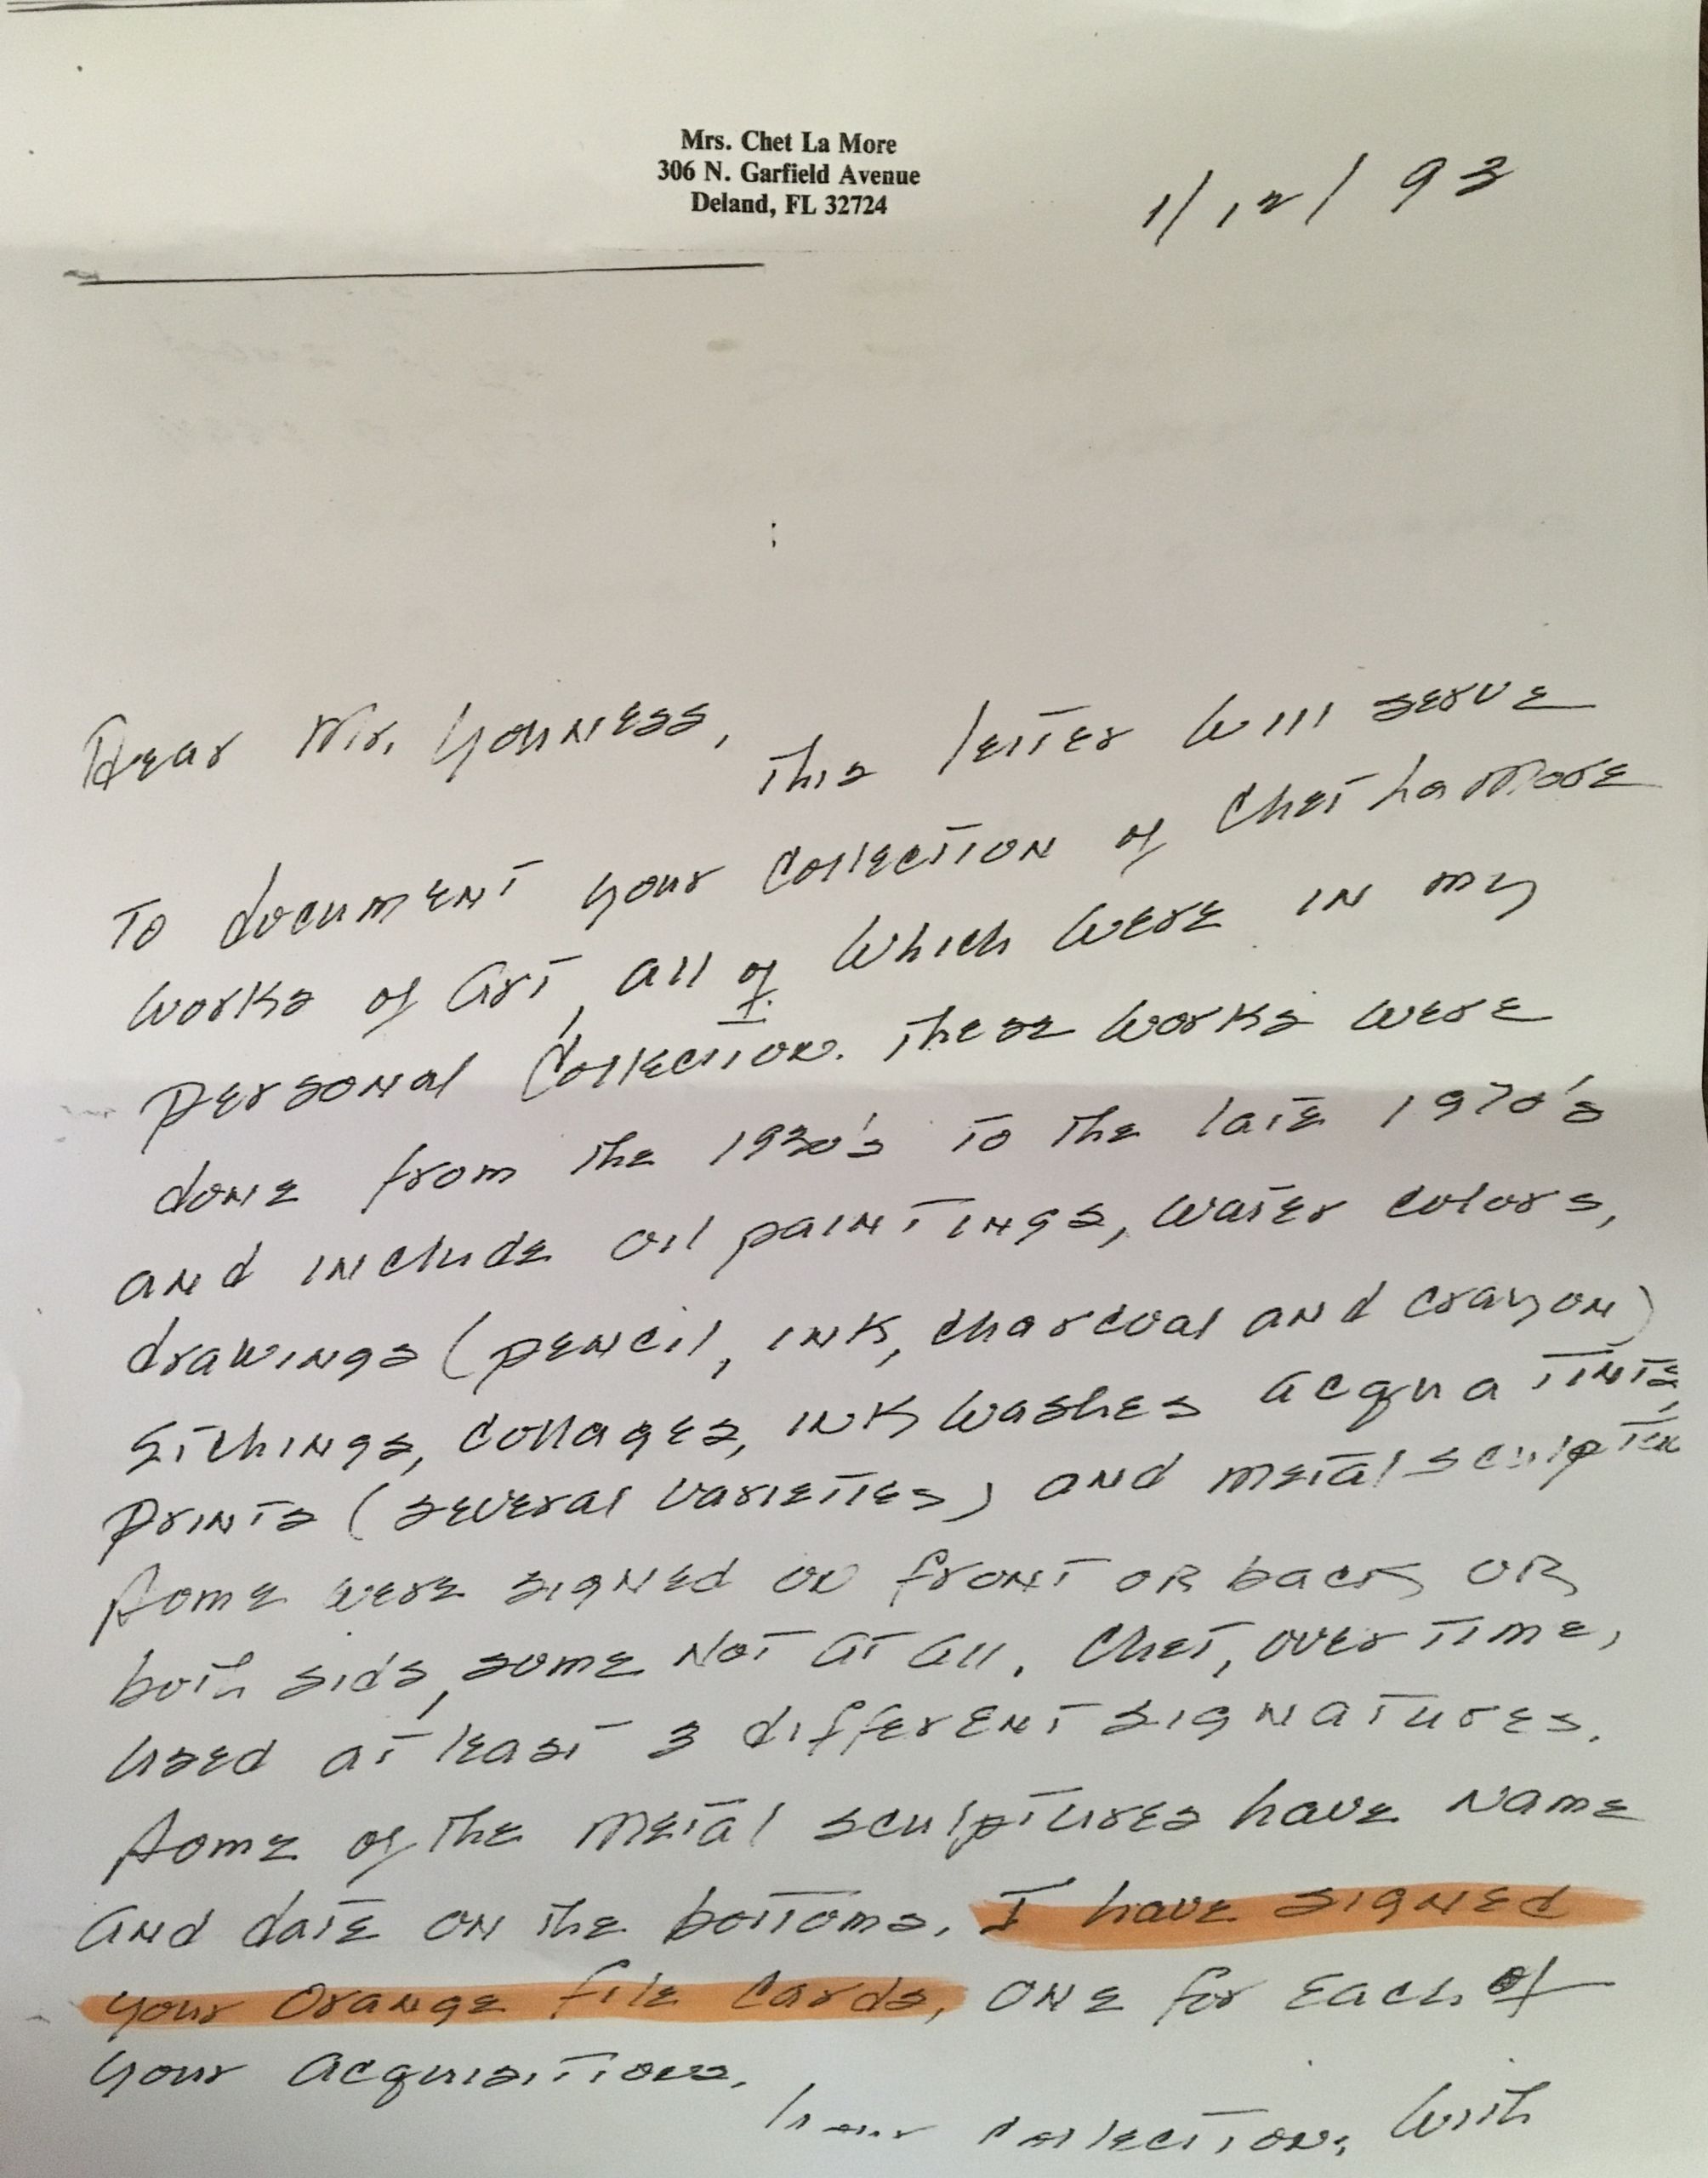 Mrs. Chet La More
306 N. Garfield Avenue
Deland, FL 32724
1/12/93
Dear Mr. Youness,
This letter will serve
To document your collection of Chet La More
works of art, all of which were in my
personal collection. These works were
done from the 1930's to the late 1970's
and include oil paintings, water colors,
drawings (pencil, ink, charcoal and crayon)
Etchings, collages, ink washes acquatints,
prints (several varieties) and metal
Some were signed on front or back or
both sids, some not at all. Chet, over time,
used at least 3 different signatures.
Some of the metal sculptures have name
and date on the bottoms. I have signed
your orange file cards, one for each of
your acquisitions.
collection, with